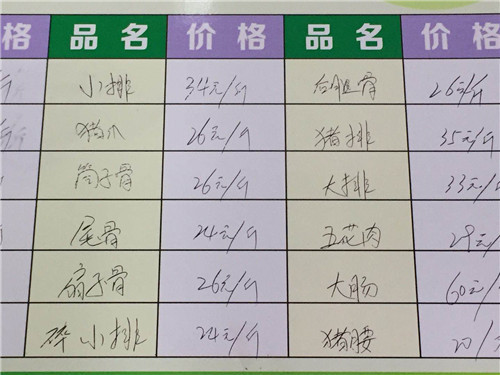 格 品名 价格 品名 价格
小排 34元/斤 26元/斤
猪爪 26元/斤 猪排 35元/
筒子骨 26元/斤 大排 33元/
尾骨 24元/斤 五花肉 29元/
扇子骨 26元/斤 大肠 60元/
碎小排 24元/斤 猪腰 20/